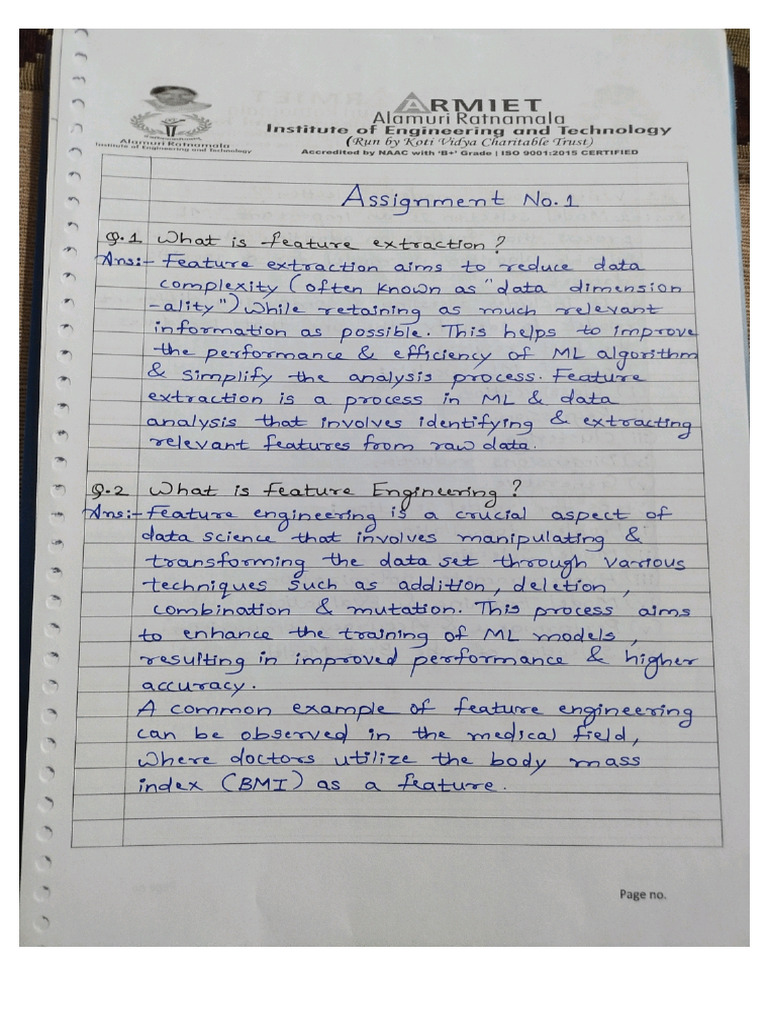 ARMIET
Alamuri Ratnamala
Institute of Engineering and Technology
(Run by Koti Vidya Charitable Trust)
Accredited by NAAC with 'B+' Grade | ISO 9001:2015 CERTIFIED
Alamuri Ratnamala
Institute of Engineering and Technology
Assignment No. 1
Q.1 What is feature extraction?
Ans:- Feature extraction aims to reduce data
complexity (often known as "data dimension
-ality") while retaining as much relevant
information as possible. This helps to improve
the performance & efficiency of ML algorithm
& simplify the analysis process. Feature
extraction is a process in ML & data
analysis that involves identifying & extracting
relevant features from raw data.
Q.2 What is Feature Engineering?
Ans:- Feature engineering is a crucial aspect of
data science that involves manipulating &
transforming the data set through various
techniques such as addition, deletion,
combination & mutation. This process aims
to enhance the training of ML models,
resulting in improved performance & higher
accuracy.
A common example of feature engineering
can be observed in the medical field,
where doctors utilize the body mass
index (BMI) as a feature.
Page no.